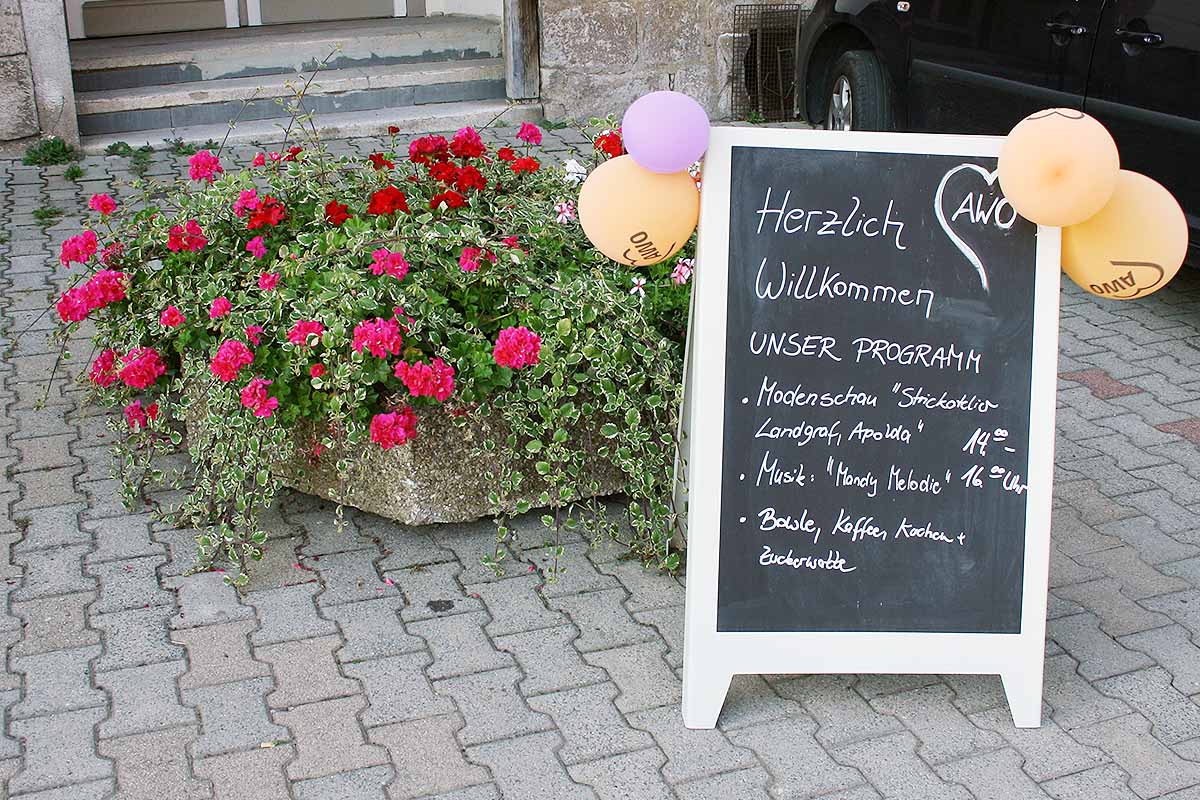 Herzlich
AWO
Willkommen
UNSER PROGRAMM
• Modenschau "Strickatelier
Landgraf, Apolda" 14.00 -
• Musik: "Mandy Melodie" 16.00 Uhr
• Bowle, Kaffee, Kuchen +
Zuckerwatte
AWO
AWO